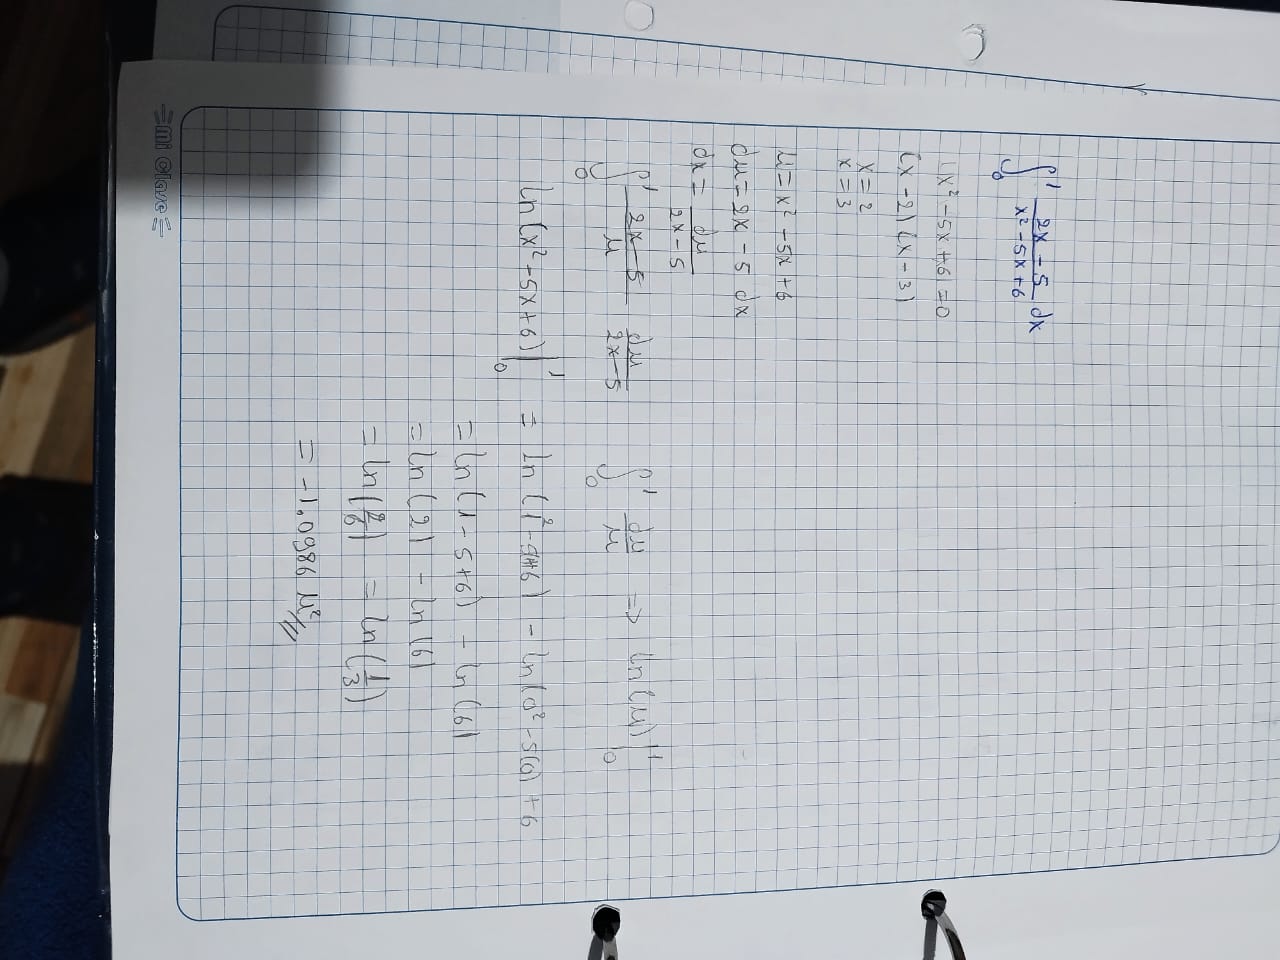 ∫₀¹ (2x-5)/(x²-5x+6) dx
(x²-5x+6)=0
(x-2)(x-3)
x=2
x=3
u=x²-5x+6
du=2x-5 dx
dx=du/(2x-5)
∫₀¹ (2x-5)/u du/(2x-5) ∫₀¹ du/u => ln(u)|₀¹
ln(x²-5x+6)|₀¹ = ln(1²- +6) - ln(0²-5(0)+6
=ln(1-5+6) - ln(6)
=ln(2) - ln(6)
=ln(2/6) = ln(1/3)
= -1.0986 u²//
Mi Clase